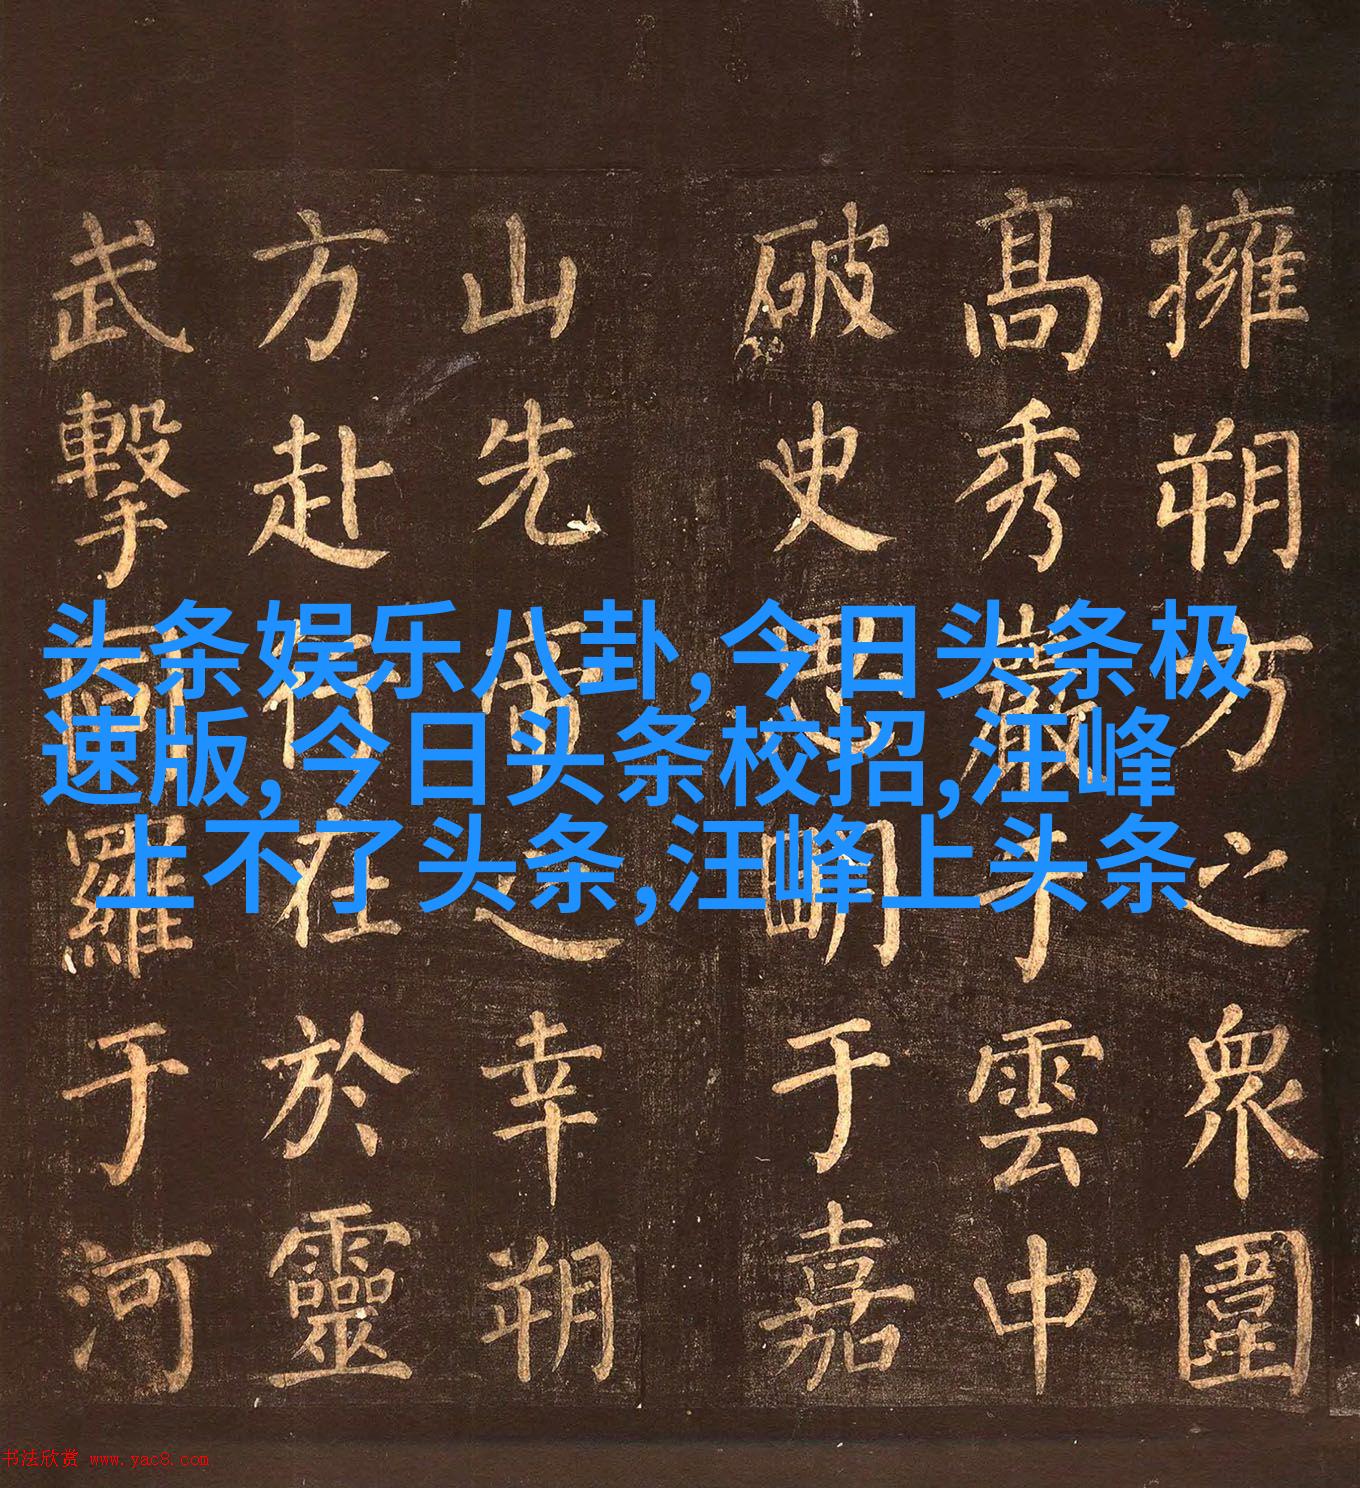 头条娱乐八卦,今日头条极
速版,今日头条校招,汪峰
上不了头条,汪峰上头条
擁朔方之衆圍
髙秀巖于雲中
破史思明于嘉
山先帝之幸朔
方赴行在於靈
武擊同羅于河
书法欣赏 www.yac8.com